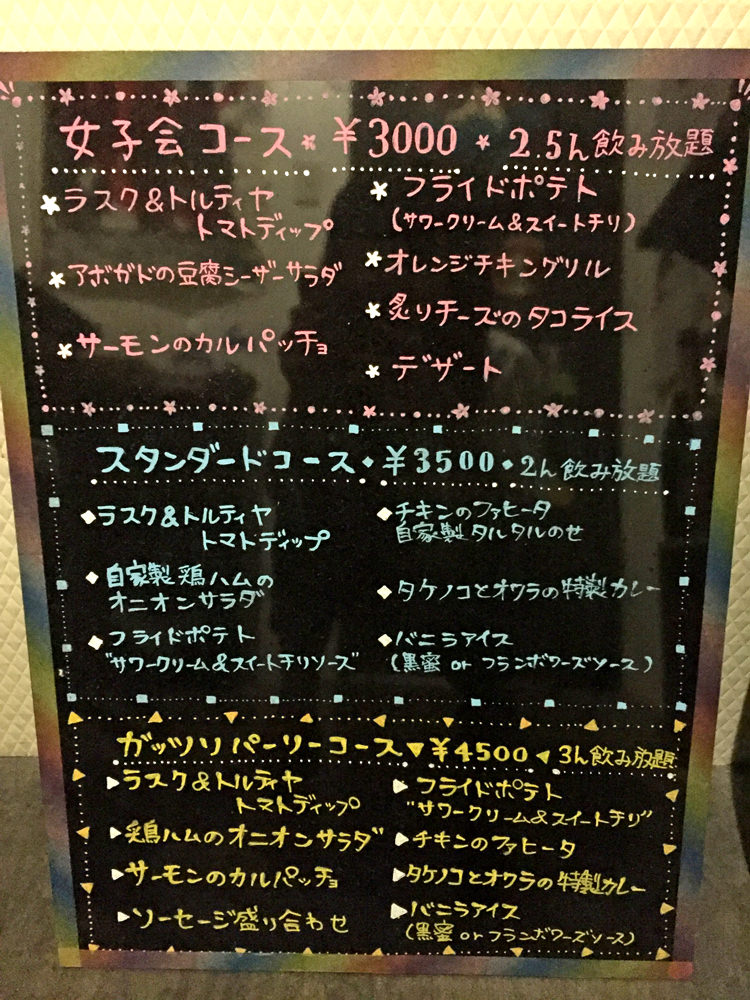 女子会コース ¥3000 2.5h飲み放題
ラスク&トルティヤ
トマトディップ
アボガドの豆腐シーザーサラダ
サーモンのカルパッチョ
フライドポテト
(サワークリーム&スイートチリ)
オレンジチキングリル
炙りチーズのタコライス
デザート
スタンダードコース ¥3500 2h飲み放題
ラスク&トルティヤ
トマトディップ
自家製鶏ハムの
オニオンサラダ
フライドポテト
"サワークリーム&スイートチリソース"
チキンのファヒータ
自家製タルタルのせ
タケノコとオクラの特製カレー
バニラアイス
(黒蜜 or フランボワーズソース)
ガッツリパーリーコース ¥4500 3h飲み放題
ラスク&トルティヤ
トマトディップ
鶏ハムのオニオンサラダ
サーモンのカルパッチョ
ソーセージ盛り合わせ
フライドポテト
"サワークリーム&スイートチリ"
チキンのファヒータ
タケノコとオクラの特製カレー
バニラアイス
(黒蜜 or フランボワーズソース)